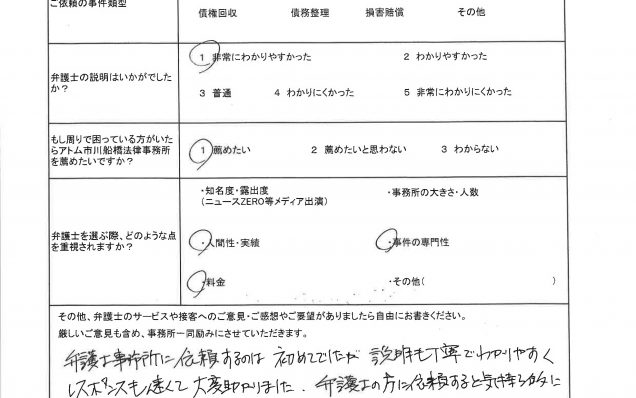 ご依頼の事件類型
債権回収 債務整理 損害賠償 その他
弁護士の説明はいかがでしたか？
1 非常にわかりやすかった 2 わかりやすかった
3 普通 4 わかりにくかった 5 非常にわかりにくかった
もし周りで困っている方がいたらアトム市川船橋法律事務所を薦めたいですか？
1 薦めたい 2 薦めたいと思わない 3 わからない
弁護士を選ぶ際、どのような点を重視されますか？
・知名度・露出度
（ニュースZERO等メディア出演）
・事務所の大きさ・人数
・人間性・実績 ・事件の専門性
・料金 ・その他（ ）
その他、弁護士のサービスや接客へのご意見・ご感想やご要望がありましたら自由にお書きください。
厳しいご意見も含め、事務所一同励みにさせていただきます。
弁護士事務所に依頼するのは初めてでしたが説明も丁寧でわかりやすく
レスポンスも速くて大変助かりました、弁護士の方に依頼すると気持ち的に